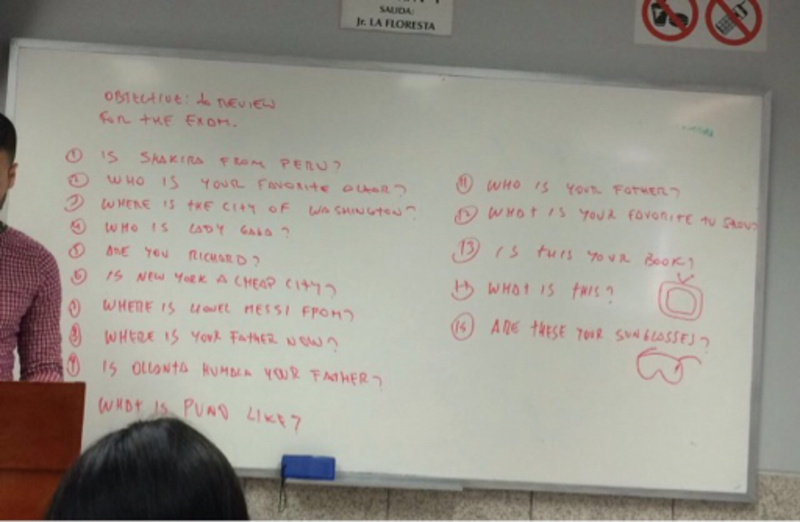 SALIDA:
Jr. LA FLORESTA
OBJECTIVE: to REVIEW
FOR THE EXAM.
① IS SHAKIRA FROM PERU?
② WHO IS YOUR FAVORITE ACTOR?
③ WHERE IS THE CITY OF WASHINGTON?
④ WHO IS LADY GAGA?
⑤ ARE YOU RICHARD?
⑥ IS NEW YORK A CHEAP CITY?
⑦ WHERE IS LIONEL MESSI FROM?
⑧ WHERE IS YOUR FATHER NOW?
⑨ IS OLLANTA HUMALA YOUR FATHER?
WHAT IS PUNO LIKE?
⑪ WHO IS YOUR FATHER?
⑫ WHAT IS YOUR FAVORITE TV SHOW?
⑬ IS THIS YOUR BOOK?
⑭ WHAT IS THIS?
⑮ ARE THESE YOUR SUNGLASSES?